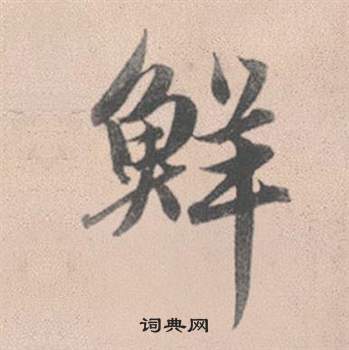 鮮
词典网